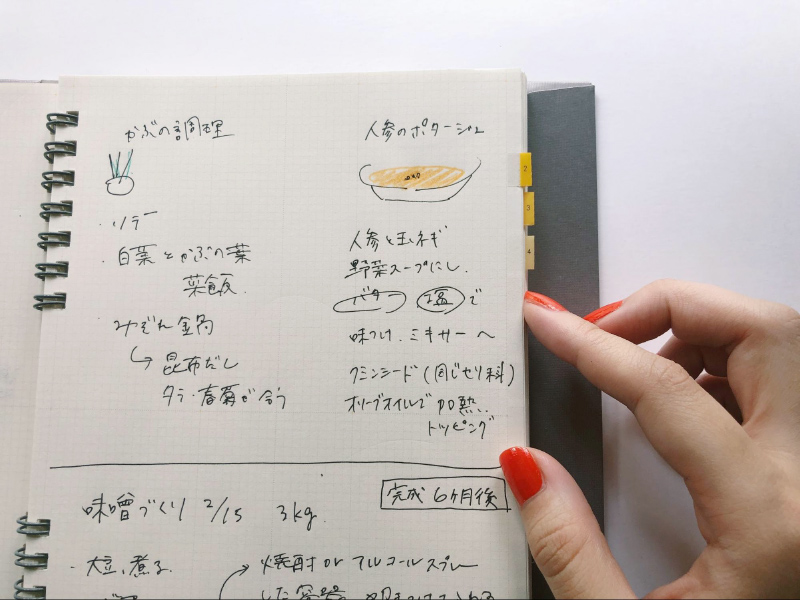 かぶの調理
・ソテー
・白菜とかぶの葉
菜飯.
・みぞれ鍋
↳ 昆布だし
タラ・春菊が合う
人参のポタージュ
人参と玉ネギ
野菜スープにし.
バター 塩 で
味つけ. ミキサーへ
クミンシード(同じセリ科)
オリーブオイルで加熱.
トッピング
2
3
4
味噌づくり 2/15 3kg.
完成6ヶ月後
・大豆、煮る.
焼酎orアルコールスプレー
した容器